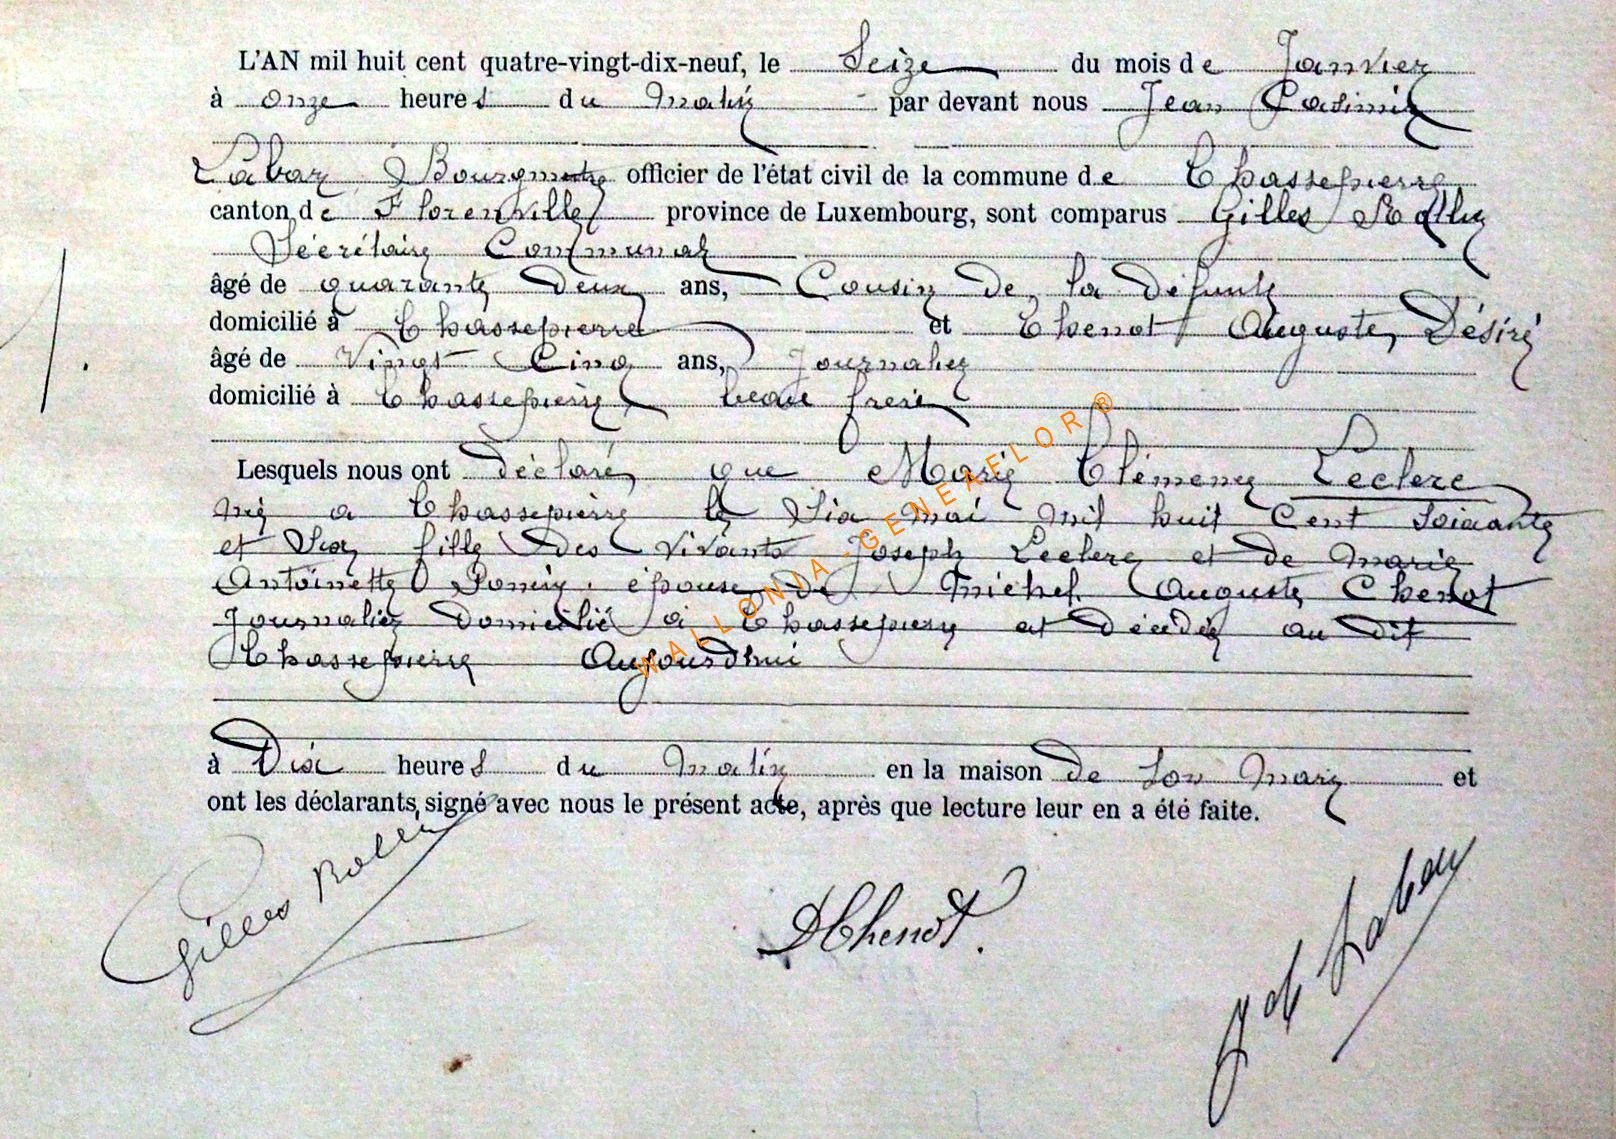 L'AN mil huit cent quatre-vingt-dix-neuf, le Seize du mois de Janvier
à onze heures du Matin par devant nous Jean Casimir
Labar, Bourgmestre officier de l'état civil de la commune de Chassepierre
canton de Florenville province de Luxembourg, sont comparus Gilles
Sécrétaire Communal
âgé de quarante Deux ans, Cousin De la Défunte
domicilié à Chassepierre et Chenot Auguste Désiré
âgé de Vingt Cinq ans, Journalier
domicilié à Chassepierre beau frere
Lesquels nous ont déclaré que Marie Clémence Leclerc
né a Chassepierre le Six mai mil huit Cent Soixante
et Six fille Des Vivants Joseph Leclerc et de Marie
Antoinette épouse De Michel Auguste Chenot
Journalier Domicilié à Chassepierre et Décédée au Dit
Chassepierre Aujourdhui
à Dix heures du Matin en la maison de Son Mary et
ont les déclarants signé avec nous le présent acte, après que lecture leur en a été faite.
Gilles
DChenot.
WALLONIA-GENEAFLOR ®
1.